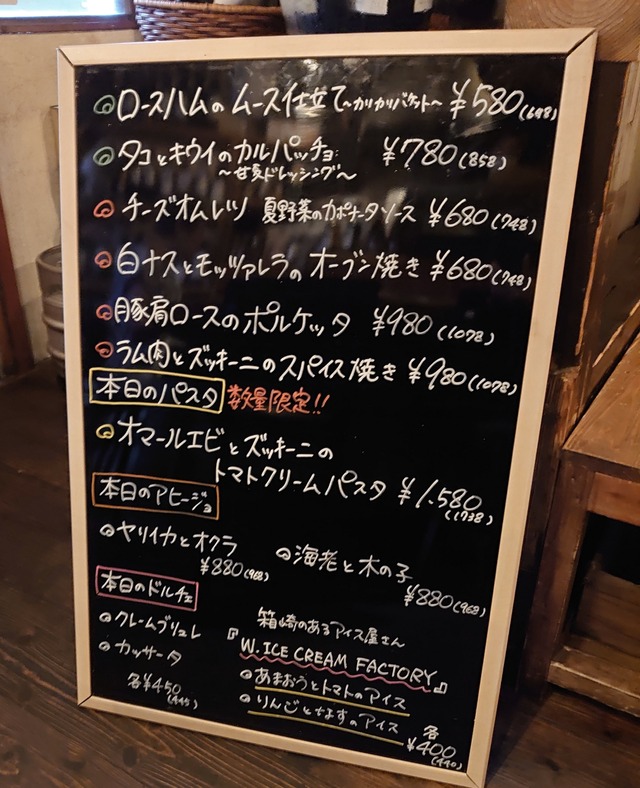 ロースハムのムース仕立て〜カリカリバケット〜 ¥580(648)
タコとキウイのカルパッチョ ¥780(858)
〜甘夏ドレッシング〜
チーズオムレツ 夏野菜のカポナータソース ¥680(748)
白ナスとモッツァレラのオーブン焼き ¥680(748)
豚肩ロースのポルケッタ ¥980(1078)
ラム肉とズッキーニのスパイス焼き ¥980(1078)
本日のパスタ 数量限定!!
オマールエビとズッキーニの
トマトクリームパスタ ¥1.580
(1738)
本日のアヒージョ
ヤリイカとオクラ
¥880(968)
海老と木の子
¥880(968)
本日のドルチェ
クレームブリュレ
カッサータ
各¥450
(495)
箱崎のあるアイス屋さん
『W.ICE CREAM FACTORY』
あまおうとトマトのアイス
りんごとなすのアイス
各
¥400
(440)